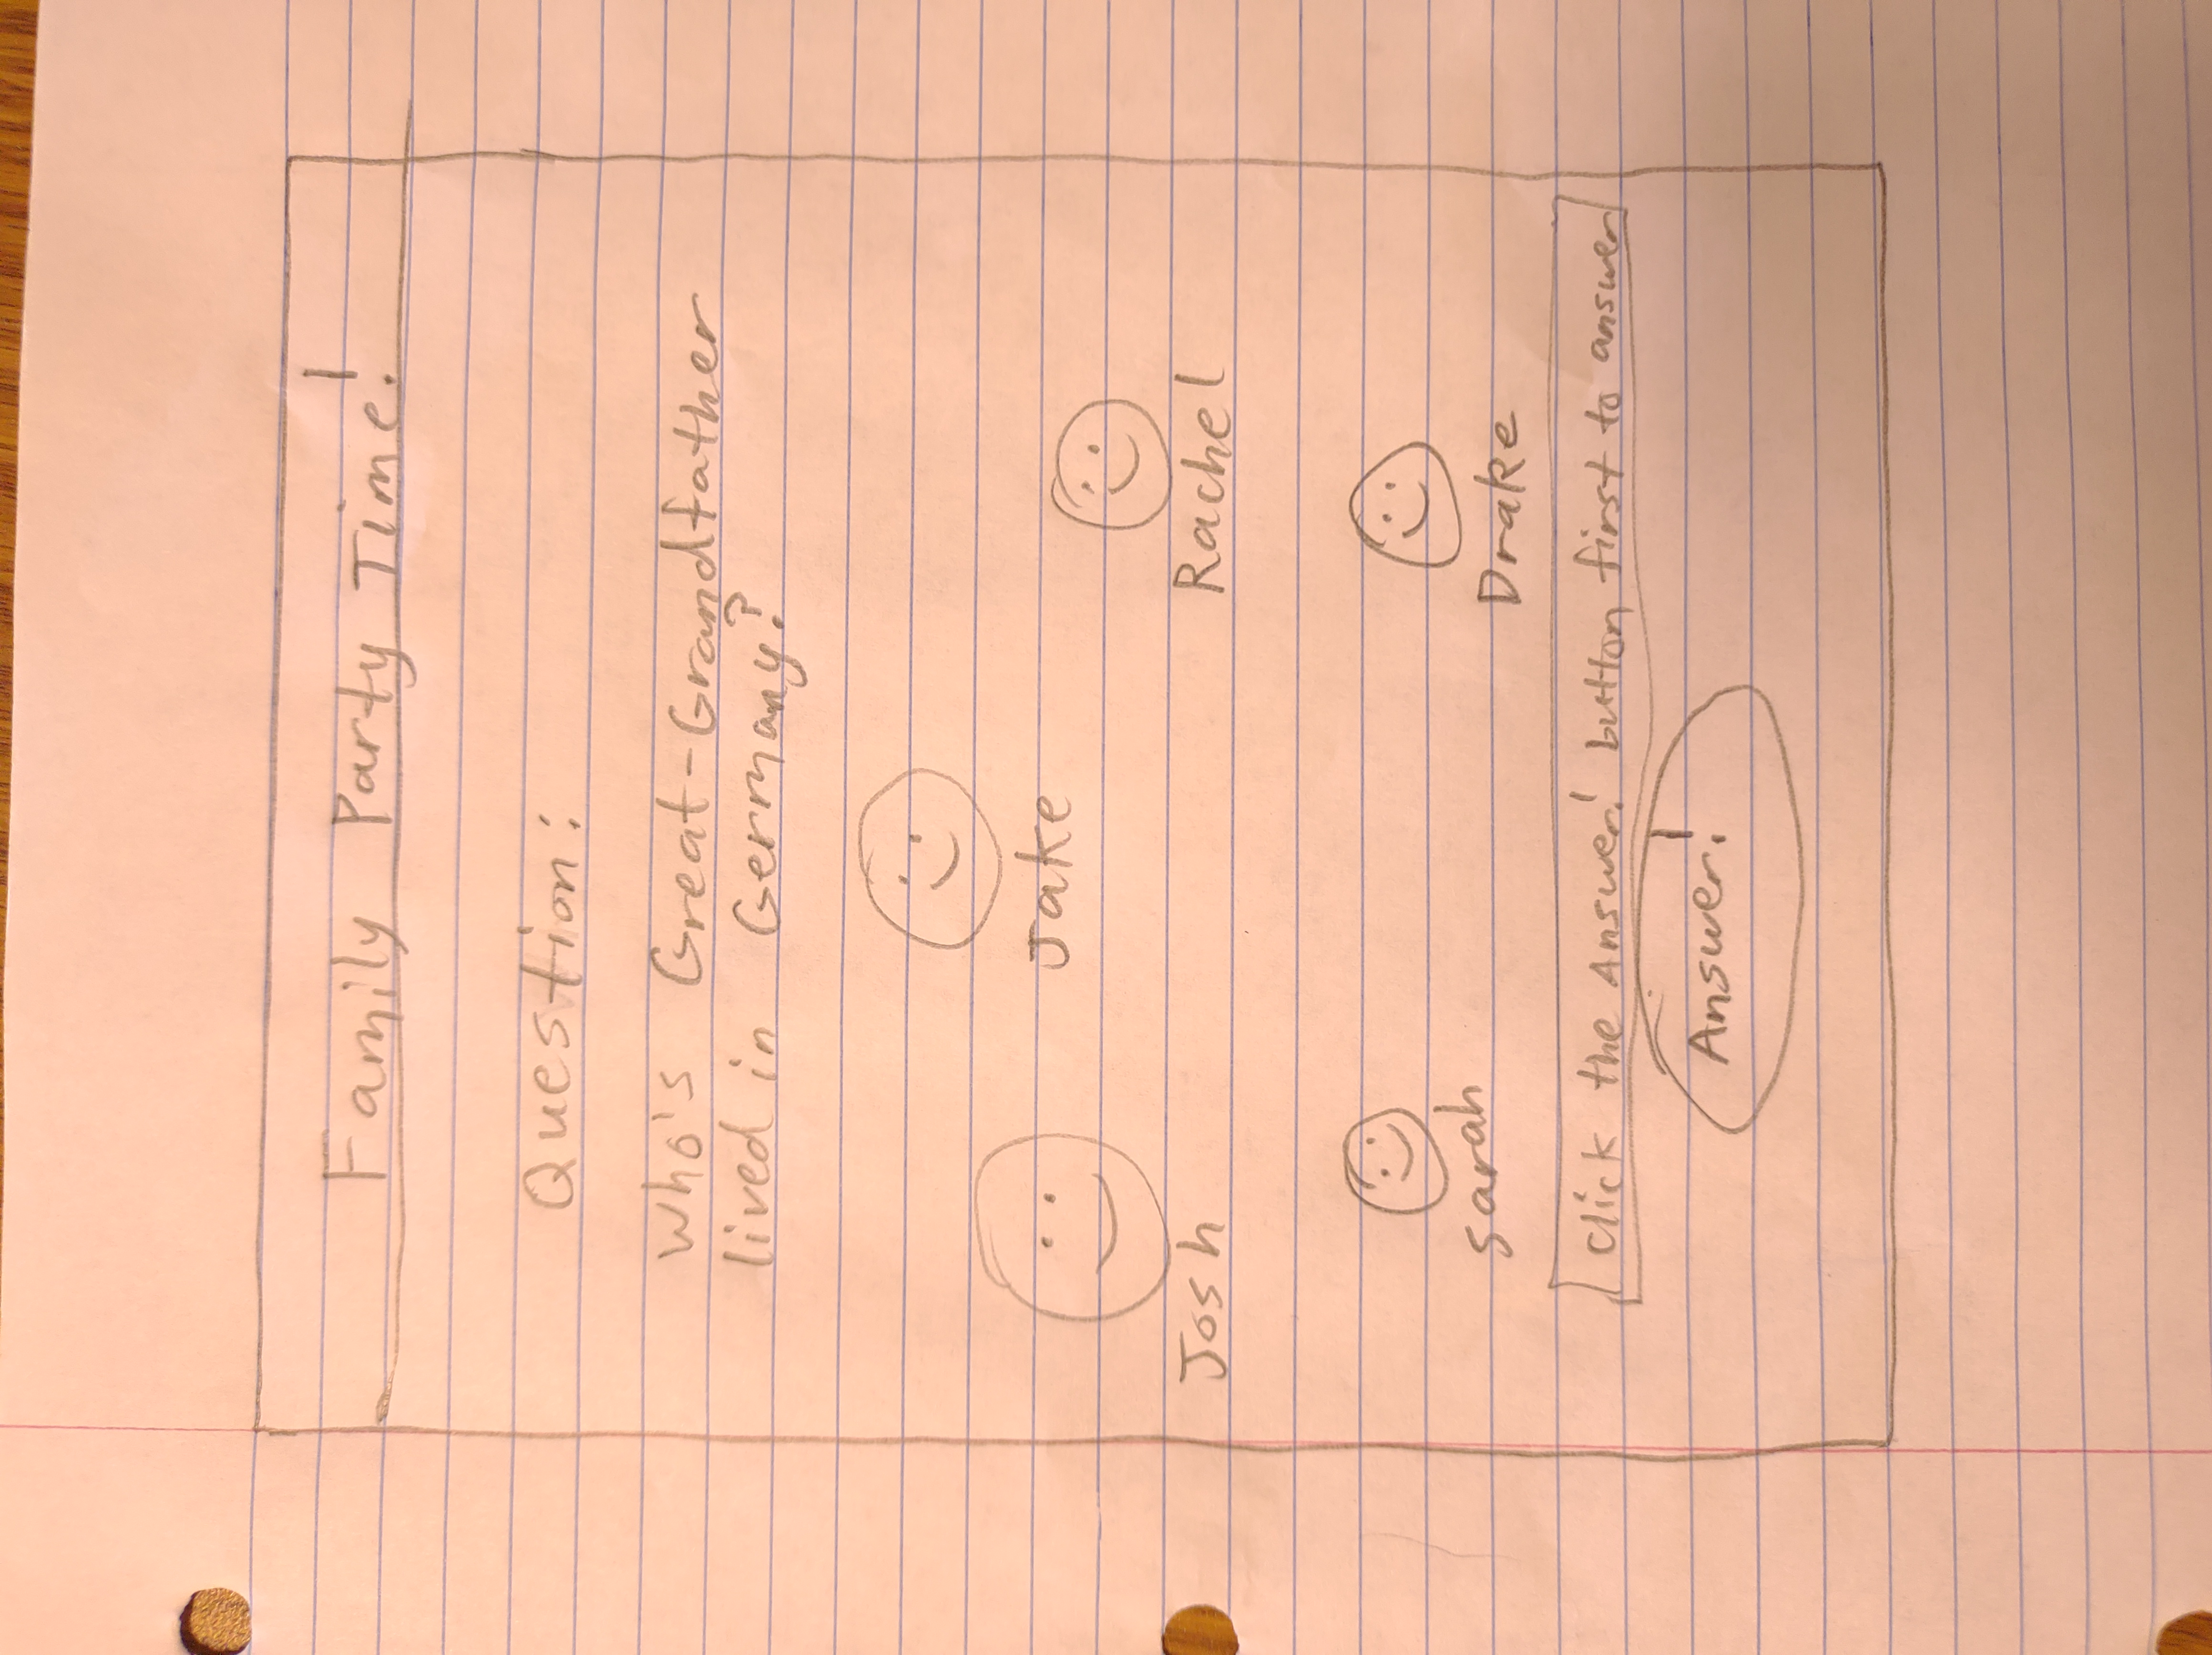 Family Party Time!
Question:
Who's Great-Grandfather
lived in Germany?
Jake
Josh
Rachel
Sarah
Drake
Click the Answer! button first to answer
Answer!